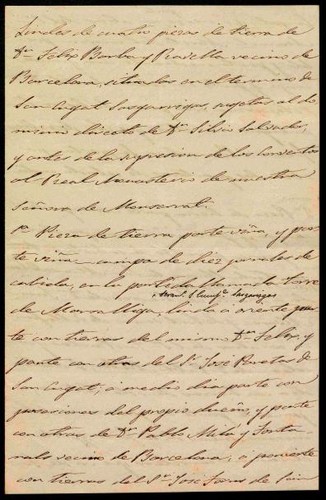 Lindes de cuatro piezas de tierra de
Dn. Felix Borba y Roselló vecino de
Barcelona, situadas en el termino de
San Cugat Sasgarrigas, sujetas al do-
minio directo de Dn. Silvio Salvador
y antes de la supresion de los conventos
al Real Monasterio de nuestra
Señora de Monserrat.
Pa. Pieza de tierra parte viña, y par-
te viña campa de diez jornales de
cabida, en la partida llamada Torre
de linda a oriente par-
te con tierras del mismo Dn. Felix y
parte con otras del Sr. José de
San Cugat; a medio dia parte con
posesiones del propio dueño, y parte
con otras de Dn. Pablo Milá y Fonta-
nals vecino de Barcelona; a poniente
con tierras del Sr. José de San